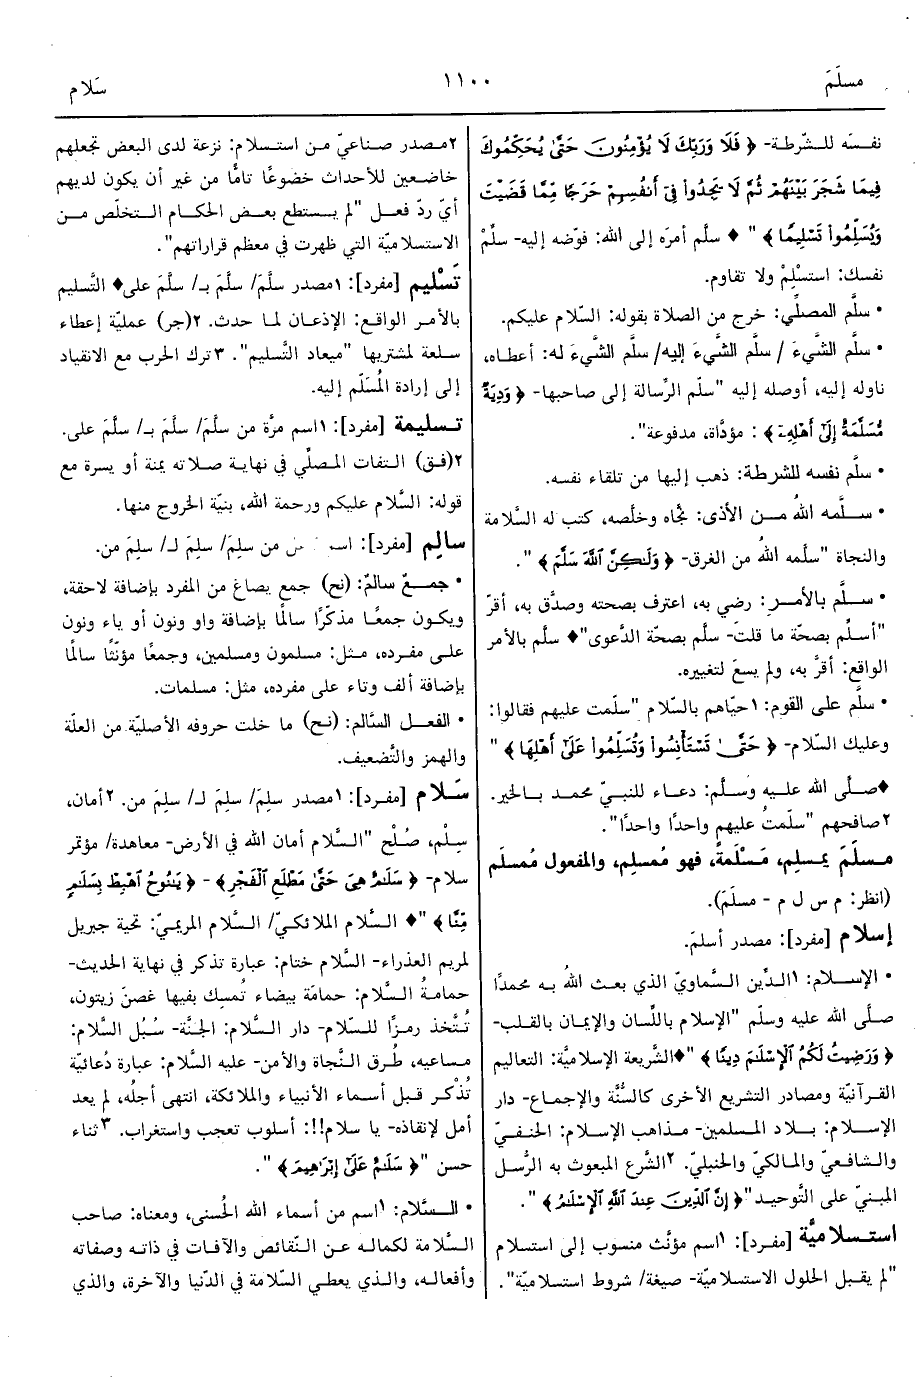 مسلَمَ
١١٠٠
سَلام
نفسَه للشرطة- ﴿ فَلَا وَرَبِّكَ لَا يُؤْمِنُونَ حَتَّىٰ يُحَكِّمُوكَ
فِيمَا شَجَرَ بَيْنَهُمْ ثُمَّ لَا يَجِدُوا۟ فِىٓ أَنفُسِهِمْ حَرَجًا مِّمَّا قَضَيْتَ
وَيُسَلِّمُوا۟ تَسْلِيمًا ﴾ " ♦ سلَّم أمرَه إلى الله: فوّضه إليه- سلِّمْ
نفسك: استسْلِمْ ولا تقاوم.
• سلَّم المصلِّي: خرج من الصلاة بقوله: السّلام عليكم.
• سلَّم الشَّيءَ / سلَّم الشَّيءَ إليه/ سلَّم الشَّيءَ له: أعطاه،
ناوله إليه، أوصله إليه "سلّم الرِّسالة إلى صاحبها- ﴿ وَدِيَةٌ
مُّسَلَّمَةٌ إِلَىٰٓ أَهْلِهِۦ ﴾ : مؤدَّاة، مدفوعة".
• سلَّم نفسه للشرطة: ذهب إليها من تلقاء نفسه.
• سلَّمه اللهُ من الأذى: نجّاه وخلّصه، كتب له السَّلامة
والنجاة "سلَّمه اللهُ من الغرق- ﴿ وَلَٰكِنَّ ٱللَّهَ سَلَّمَ ﴾ ".
• سلَّم بالأمر: رضي به، اعترف بصحته وصدَّق به، أقرّ
"أسلِّم بصحّة ما قلتَ- سلَّم بصحّة الدَّعوى"♦ سلَّم بالأمر
الواقع: أقرَّ به، ولم يسعَ لتغييره.
• سلَّم على القوم: ١حيّاهم بالسَّلام "سلّمت عليهم فقالوا:
وعليك السّلام- ﴿ حَتَّىٰ تَسْتَأْنِسُوا۟ وَتُسَلِّمُوا۟ عَلَىٰٓ أَهْلِهَا ﴾ "
♦صلَّى الله عليه وسلَّم: دعاء للنبيّ محمد بالخير.
٢صافحهم "سلّمتُ عليهم واحدًا واحدًا".
مسلَمَ يمسلِم، مَسْلَمةً، فهو مُمسلِم، والمفعول مُمسلَم
(انظر: م س ل م - مسلَمَ).
إسلام [مفرد]: مصدر أسلمَ.
• الإسلام: ١الدِّين السَّماويّ الذي بعث اللهُ به محمدًا
صلَّى الله عليه وسلَّم "الإسلام باللِّسان والإيمان بالقلب-
﴿ وَرَضِيتُ لَكُمُ ٱلْإِسْلَٰمَ دِينًا ﴾ "♦الشَّريعة الإسلاميَّة: التعاليم
القرآنيّة ومصادر التشريع الأخرى كالسُّنَّة والإجماع- دار
الإسلام: بلاد المسلمين- مذاهب الإسلام: الحنفيّ
والشافعيّ والمالكيّ والحنبليّ. ٢الشَّرع المبعوث به الرُّسل
المبنيّ على التَّوحيد"﴿ إِنَّ ٱلدِّينَ عِندَ ٱللَّهِ ٱلْإِسْلَٰمُ ﴾ ".
استسلاميَّة [مفرد]: ١اسم مؤنَّث منسوب إلى استسلام
"لم يقبل الحلول الاستسلاميّة- صيغة/ شروط استسلاميّة".
٢مصدر صناعيّ من استسلام: نزعة لدى البعض تجعلهم
خاضعين للأحداث خضوعًا تامًّا من غير أن يكون لديهم
أيّ ردّ فعل "لم يستطع بعض الحكام التخلّص من
الاستسلاميّة التي ظهرت في معظم قراراتهم".
تَسْليم [مفرد]: ١مصدر سلَّمَ/ سلَّمَ بـ/ سلَّمَ على♦ التَّسليم
بالأمر الواقع: الإذعان لما حدث. ٢(جر) عمليّة إعطاء
سلعة لمشتريها "ميعاد التَّسليم". ٣ترك الحرب مع الانقياد
إلى إرادة المُسَلَّم إليه.
تسليمة [مفرد]: ١اسم مرَّة من سلَّمَ/ سلَّمَ بـ/ سلَّمَ على.
٢(فق) التفات المصلِّي في نهاية صلاته يمنة أو يسرة مع
قوله: السَّلام عليكم ورحمة الله، بنيّة الخروج منها.
سالِم [مفرد]: من سلِمَ/ سلِمَ لـ/ سلِمَ من.
• جمعٌ سالمٌ: (نح) جمع يصاغ من المفرد بإضافة لاحقة،
ويكون جمعًا مذكّرًا سالمًا بإضافة واو ونون أو ياء ونون
على مفرده، مثل: مسلمون ومسلمين، وجمعًا مؤنّثًا سالمًا
بإضافة ألف وتاء على مفرده، مثل: مسلمات.
• الفعل السَّالم: (نح) ما خلت حروفه الأصليّة من العلّة
والهمز والتَّضعيف.
سَلام [مفرد]: ١مصدر سلِمَ/ سلِمَ لـ/ سلِمَ من. ٢أمان،
سِلْم، صُلْح "السَّلام أمان الله في الأرض- معاهدة/ مؤتمر
سلام- ﴿ سَلَٰمٌ هِىَ حَتَّىٰ مَطْلَعِ ٱلْفَجْرِ ﴾ - ﴿ يَٰنُوحُ ٱهْبِطْ بِسَلَٰمٍ
مِّنَّا ﴾ "♦ السَّلام الملائكيّ/ السَّلام المريميّ: تحية جبريل
لمريم العذراء- السَّلام ختام: عبارة تذكر في نهاية الحديث-
حمامةُ السَّلام: حمامَة بيضاء تُمسِك بفيها غصنَ زيتون،
تُتَّخذ رمزًا للسّلام- دار السَّلام: الجنَّة- سُبُل السَّلام:
مساعيه، طُرق النَّجاة والأمن- عليه السَّلام: عبارة دُعائيّة
تُذْكر قبل أسماء الأنبياء والملائكة، انتهى أجلُه، لم يعد
أمل لإنقاذه- يا سلام!!: أسلوب تعجب واستغراب. ٣ثناء
حسن "﴿ سَلَٰمٌ عَلَىٰٓ إِبْرَٰهِيمَ ﴾ ".
• السَّلام: ١اسم من أسماء الله الحُسنى، ومعناه: صاحب
السَّلامة لكماله عن النَّقائص والآفات في ذاته وصفاته
وأفعاله، والذي يعطي السَّلامة في الدّنيا والآخرة، والذي